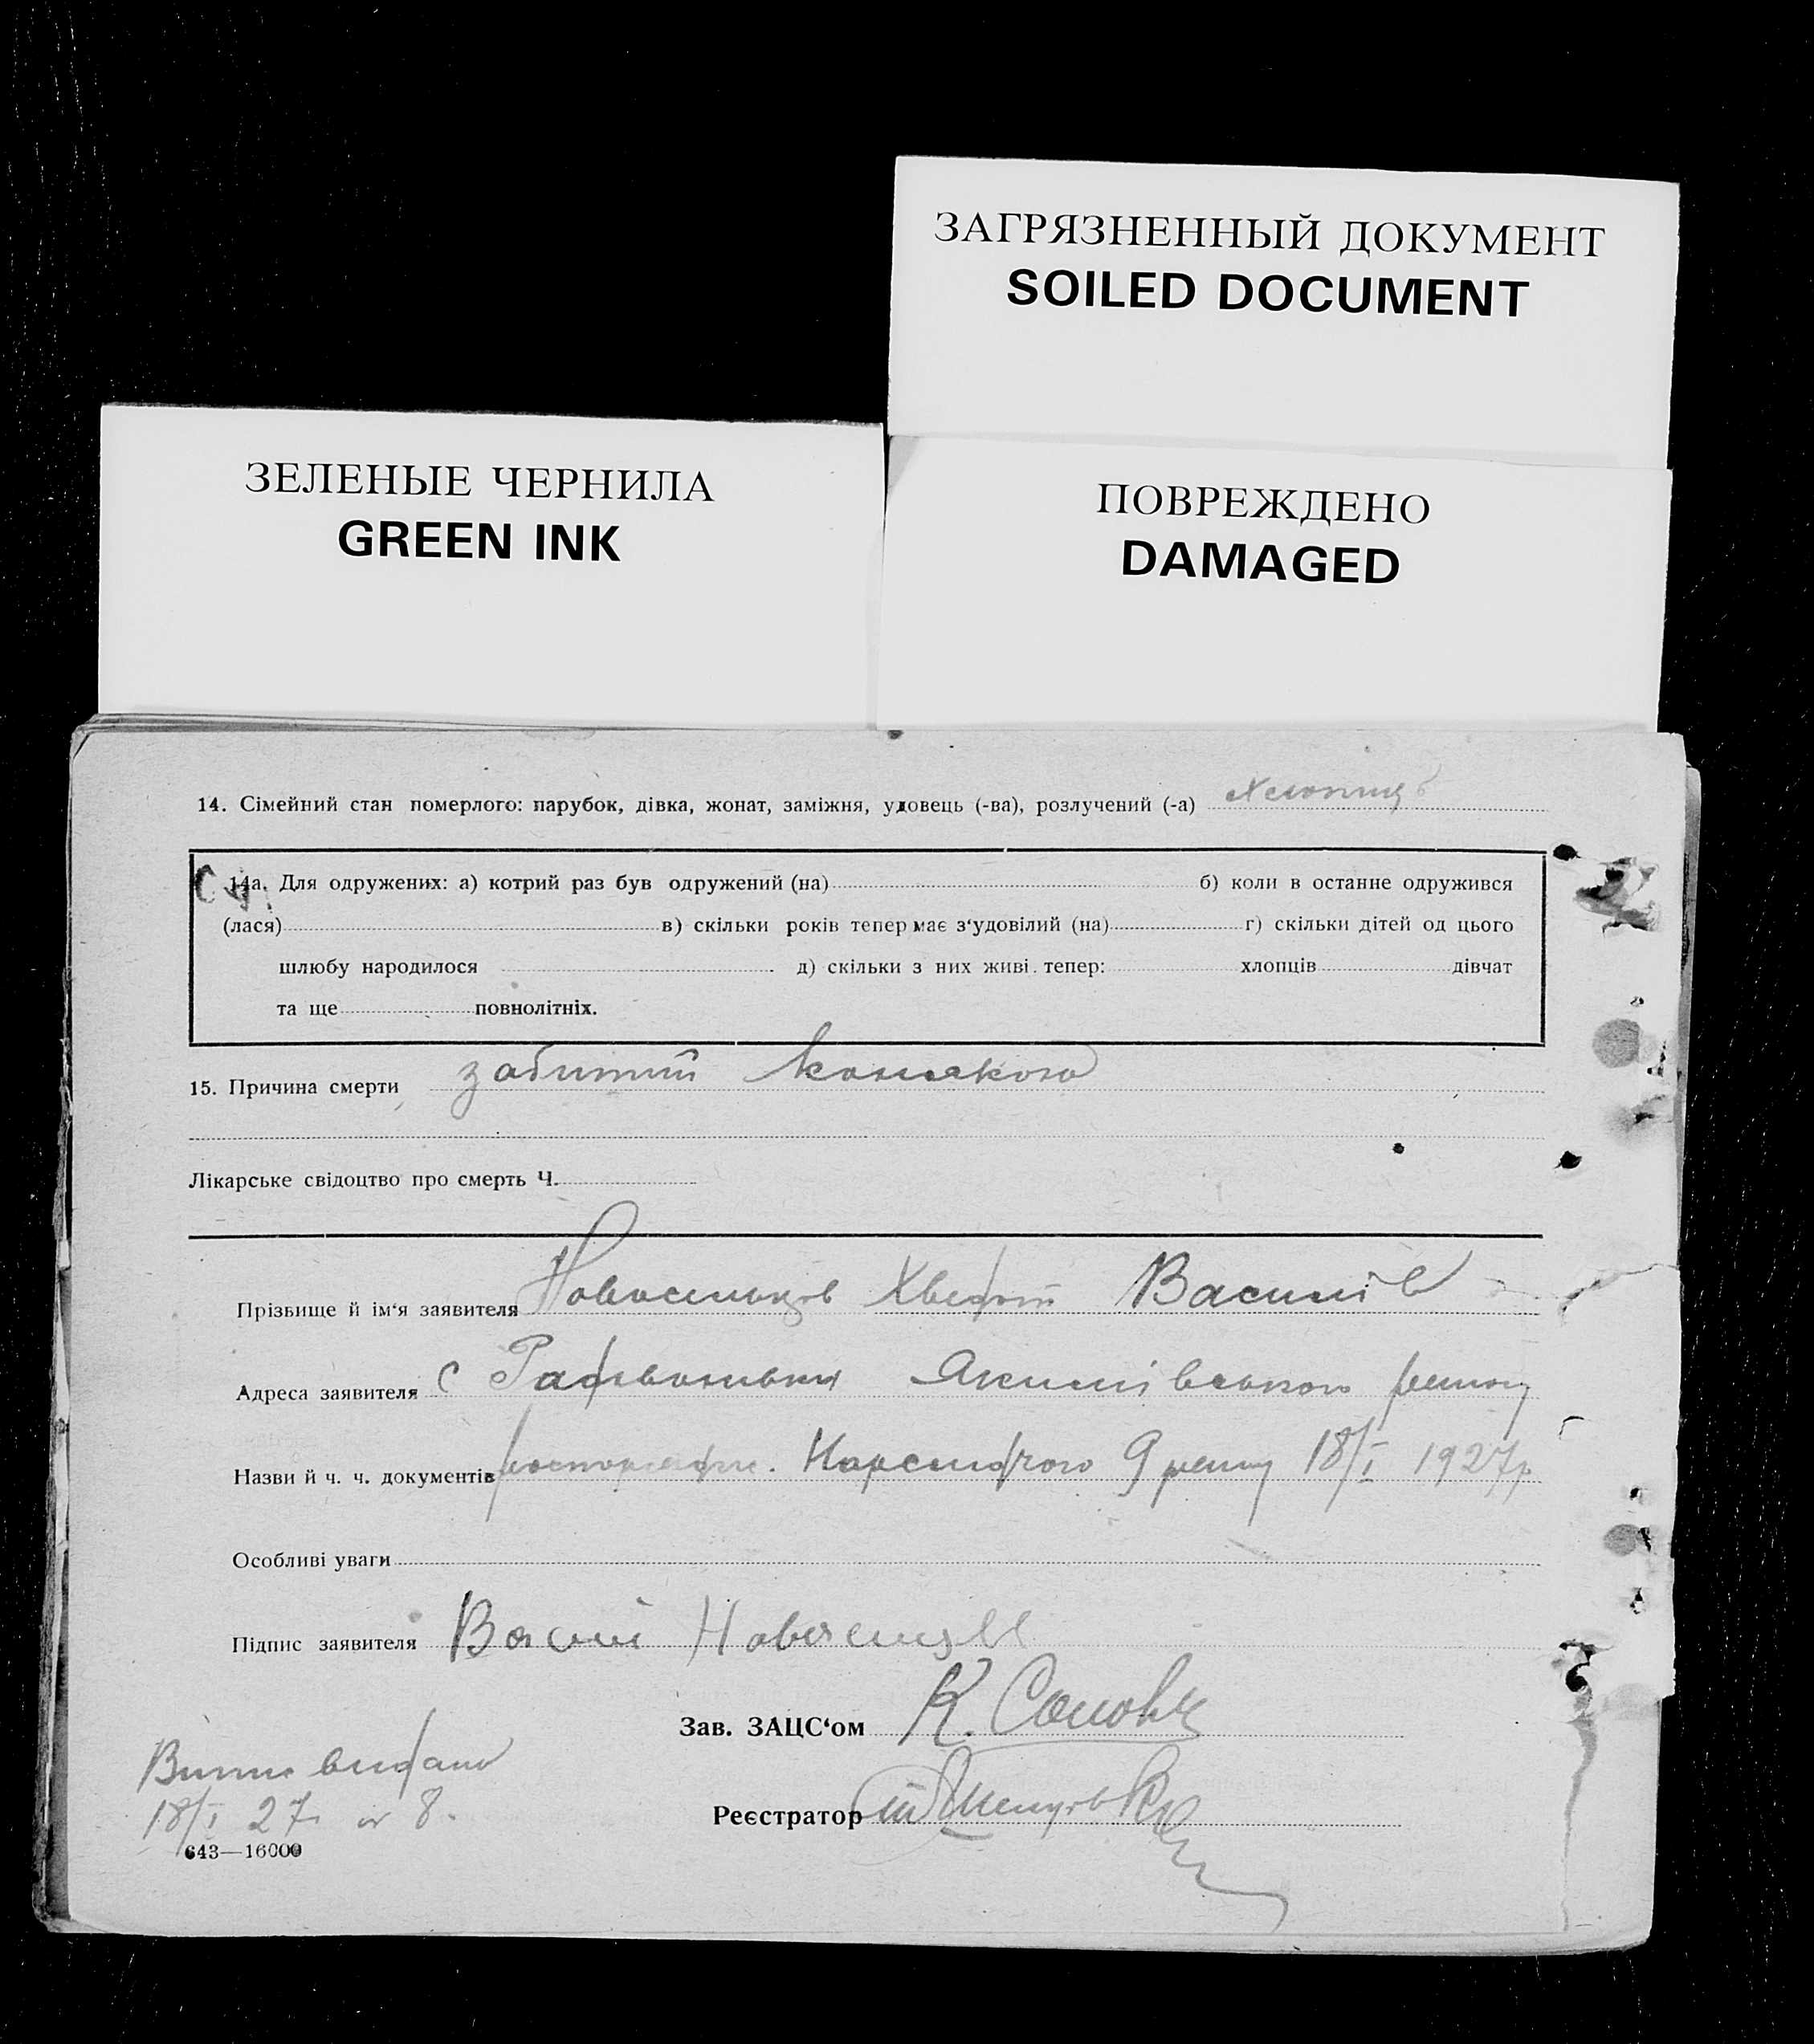 ЗАГРЯЗНЕННЫЙ ДОКУМЕНТ
SOILED DOCUMENT
ЗЕЛЕНЫЕ ЧЕРНИЛА
GREEN INK
ПОВРЕЖДЕНО
DAMAGED
14. Сімейний стан померлого: парубок, дівка, жонат, заміжня, удовець (-ва), розлучений (-а) хлопець
14а. Для одружених: а) котрий раз був одружений (на) б) коли в останне одружився
(лася) в) скільки років тепер має з‘удовілий (на) г) скільки дітей од цього
шлюбу народилося д) скільки з них живі тепер: хлопців дівчат
та ще повнолітніх.
15. Причина смерти забитий
Лікарське свідоцтво про смерть Ч.
Прізвище й ім‘я заявителя Новосильцов Василів
Адреса заявителя с Якимівського району
Назви й ч. ч. документів Нарслідчого 9 18/I 1927р
Особливі уваги
Підпис заявителя
Зав. ЗАЦС‘ом К.
Реєстратор
видано
18/I 27 8.
643—16000